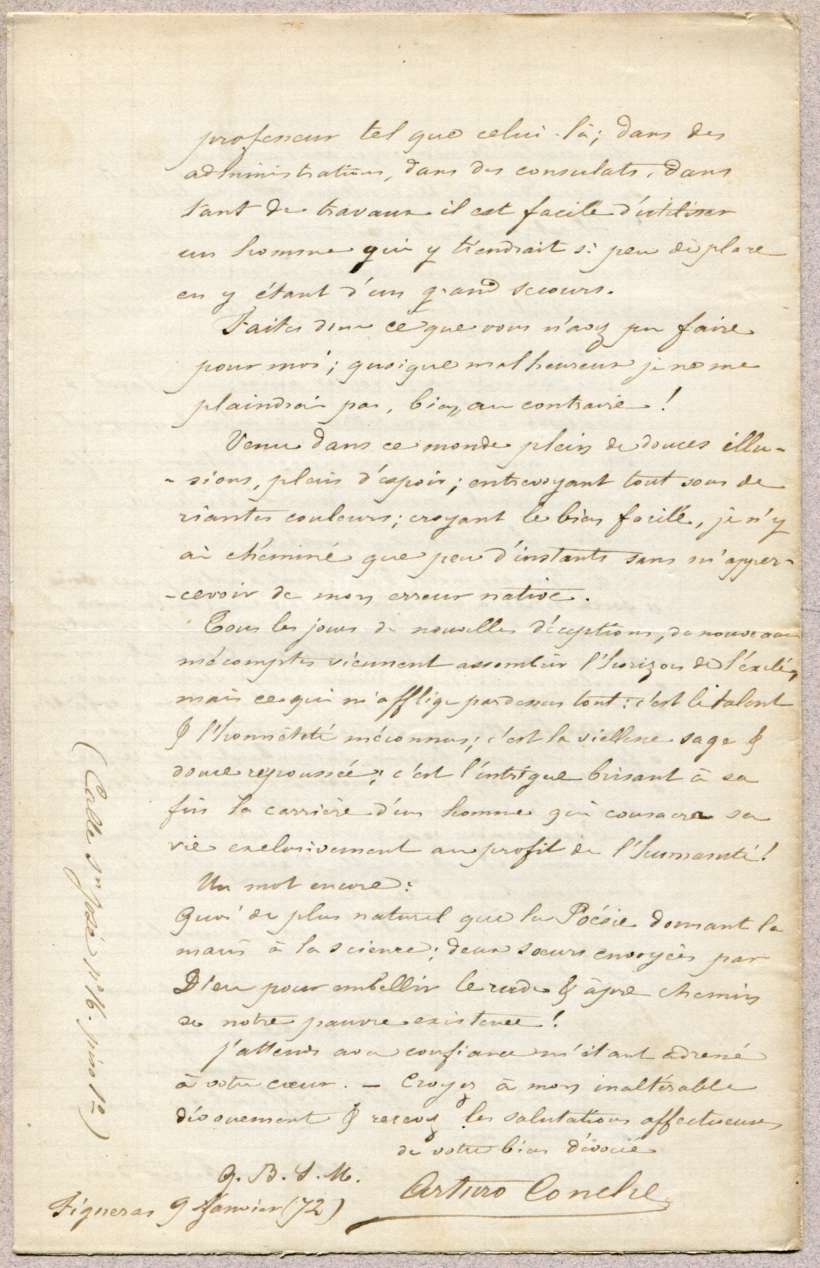 professeur tel que celui-là; dans des
administrations, dans des consulats, dans
tant de travaux il est facile d'utiliser
un homme qui y tiendrait si peu de place
en y étant d'un grand secours.
Faites donc ce que vous n'avez pu faire
pour moi; quoique malheureux je ne me
plaindrai pas, bien au contraire!
Venu dans ce monde plein de douces illu-
-sions, plein d'espoir; entrevoyant tout sous de
riantes couleurs; croyant le bien facile, je n'y
ai cheminé que peu d'instants sans m'apper-
-cevoir de mon erreur native.
Tous les jours de nouvelles déceptions, de nouveaux
mécomptes viennent assombrir l'horizon de l'exilé,
mais ce qui m'afflige par dessus tout: c'est le talent
& l'honnêteté méconnus; c'est la viellesse sage &
douce repoussée; c'est l'intrigue brisant à sa
fin la carrière d'un homme qui consacra sa
vie exclusivement au profit de l'humanité!
Un mot encore:
Quoi de plus naturel que la Poésie donnant la
main à la science; deux soeurs envoyées par
Dieu pour embellir le rude & âpre chemin
de notre pauvre existence!
J'attends avec confiance m'étant adressé
à votre coeur. — Croyez à mon inaltérable
dévouement & recevez les salutations affectueuses
de votre bien dévoué
Q. B. S. M.
Arturo Conche
Figueras 9 Janvier (72)
(Calle Sn José nº 16. piso 1º)